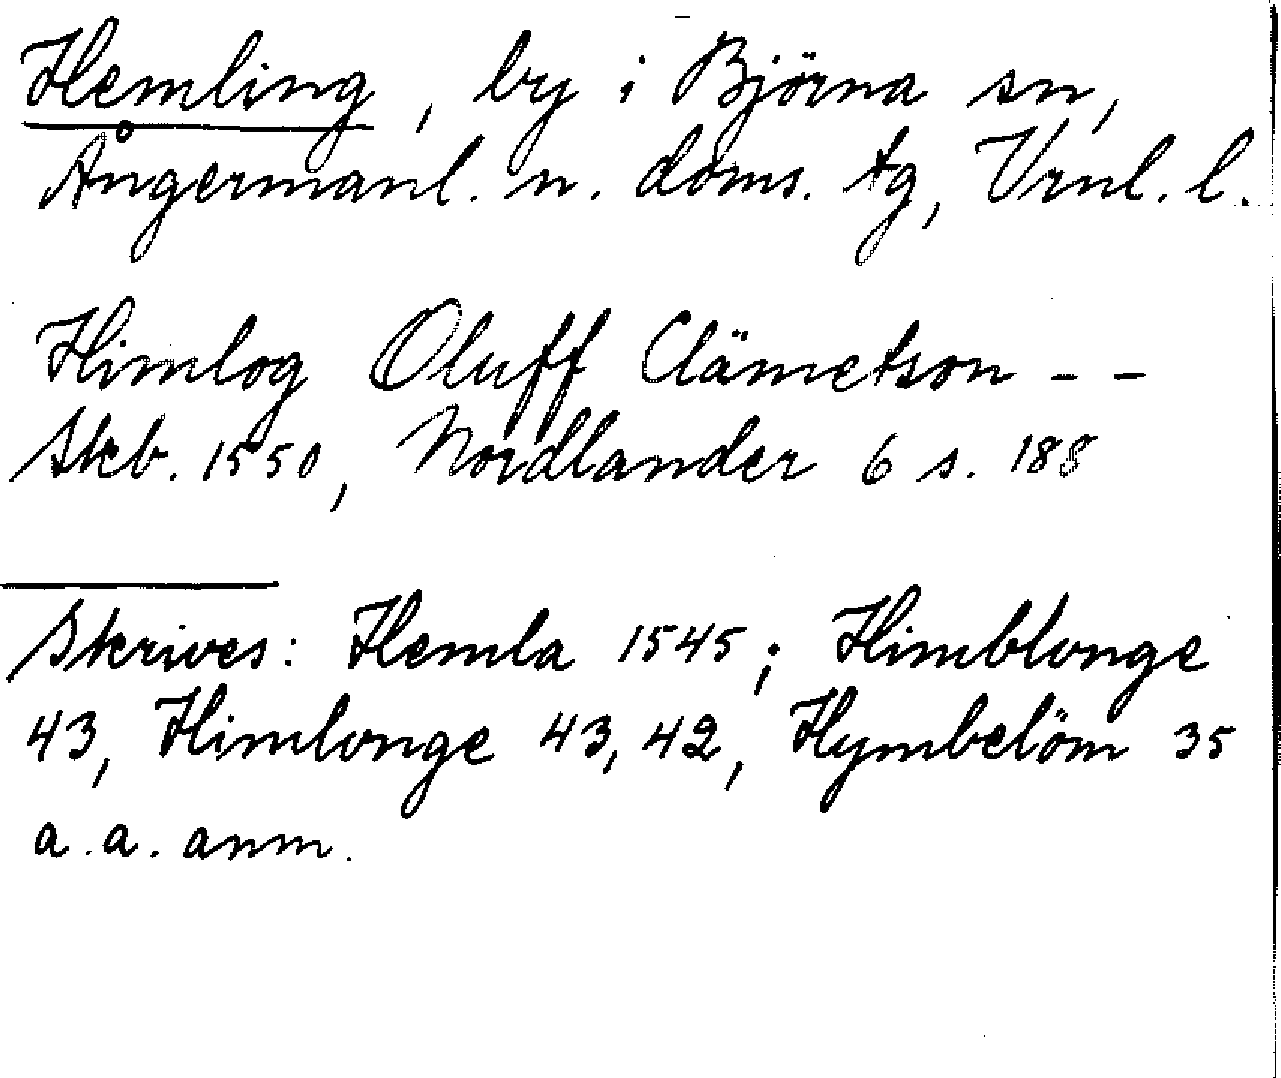 Hemling, by i Björna sn,
Ångermanl. n. doms. tg, Vrnl. l.
Himlog Oluff Clämetson - -
Skb. 1550, Nordlander 6 s. 188
Skrives: Hemla 1545; Himblonge
43, Himlonge 43, 42, Hymbelöm 35
a. a. anm.